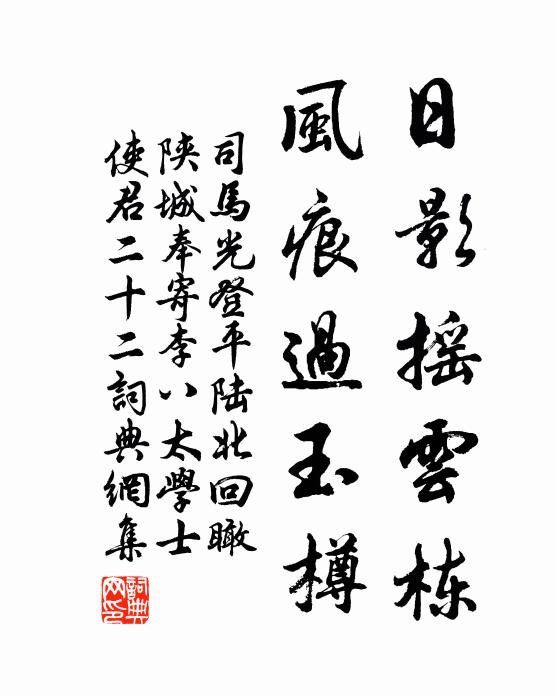 日影摇雲栋
風痕過玉樽
司馬光登平陸北回瞰
陕城奉寄李八太學士
使君二十二詞典網集
詞典網印